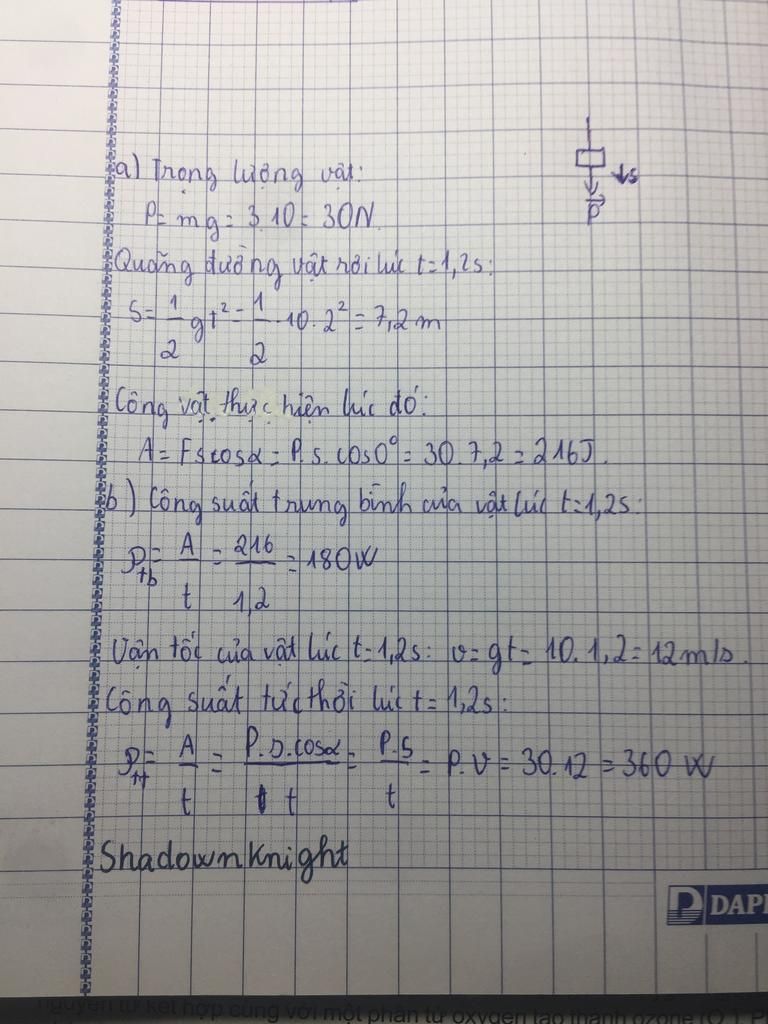 a) Trọng lượng vật:
P = mg = 3.10 = 30N.
Quãng đường vật rơi lúc t=1,2s:
S = 1/2 gt² = 1/2 .10.2² = 7,2m
Công vật thực hiện lúc đó:
A = Fscosα = P.s.cos0° = 30.7,2 = 216J.
b) Công suất trung bình của vật lúc t=1,2s:
𝒫tb = A/t = 216/1,2 = 180W
Vận tốc của vật lúc t=1,2s: v=gt= 10.1,2=12m/s.
Công suất tức thời lúc t=1,2s:
𝒫tt = A/t = P.s.cosα/t = P.S/t = P.v = 30.12 = 360W
ShadownKnight
↓s
P⃗
DAPI
nguyên tử kết hợp cùng với một phân tử oxygen tạo thành ozone (O